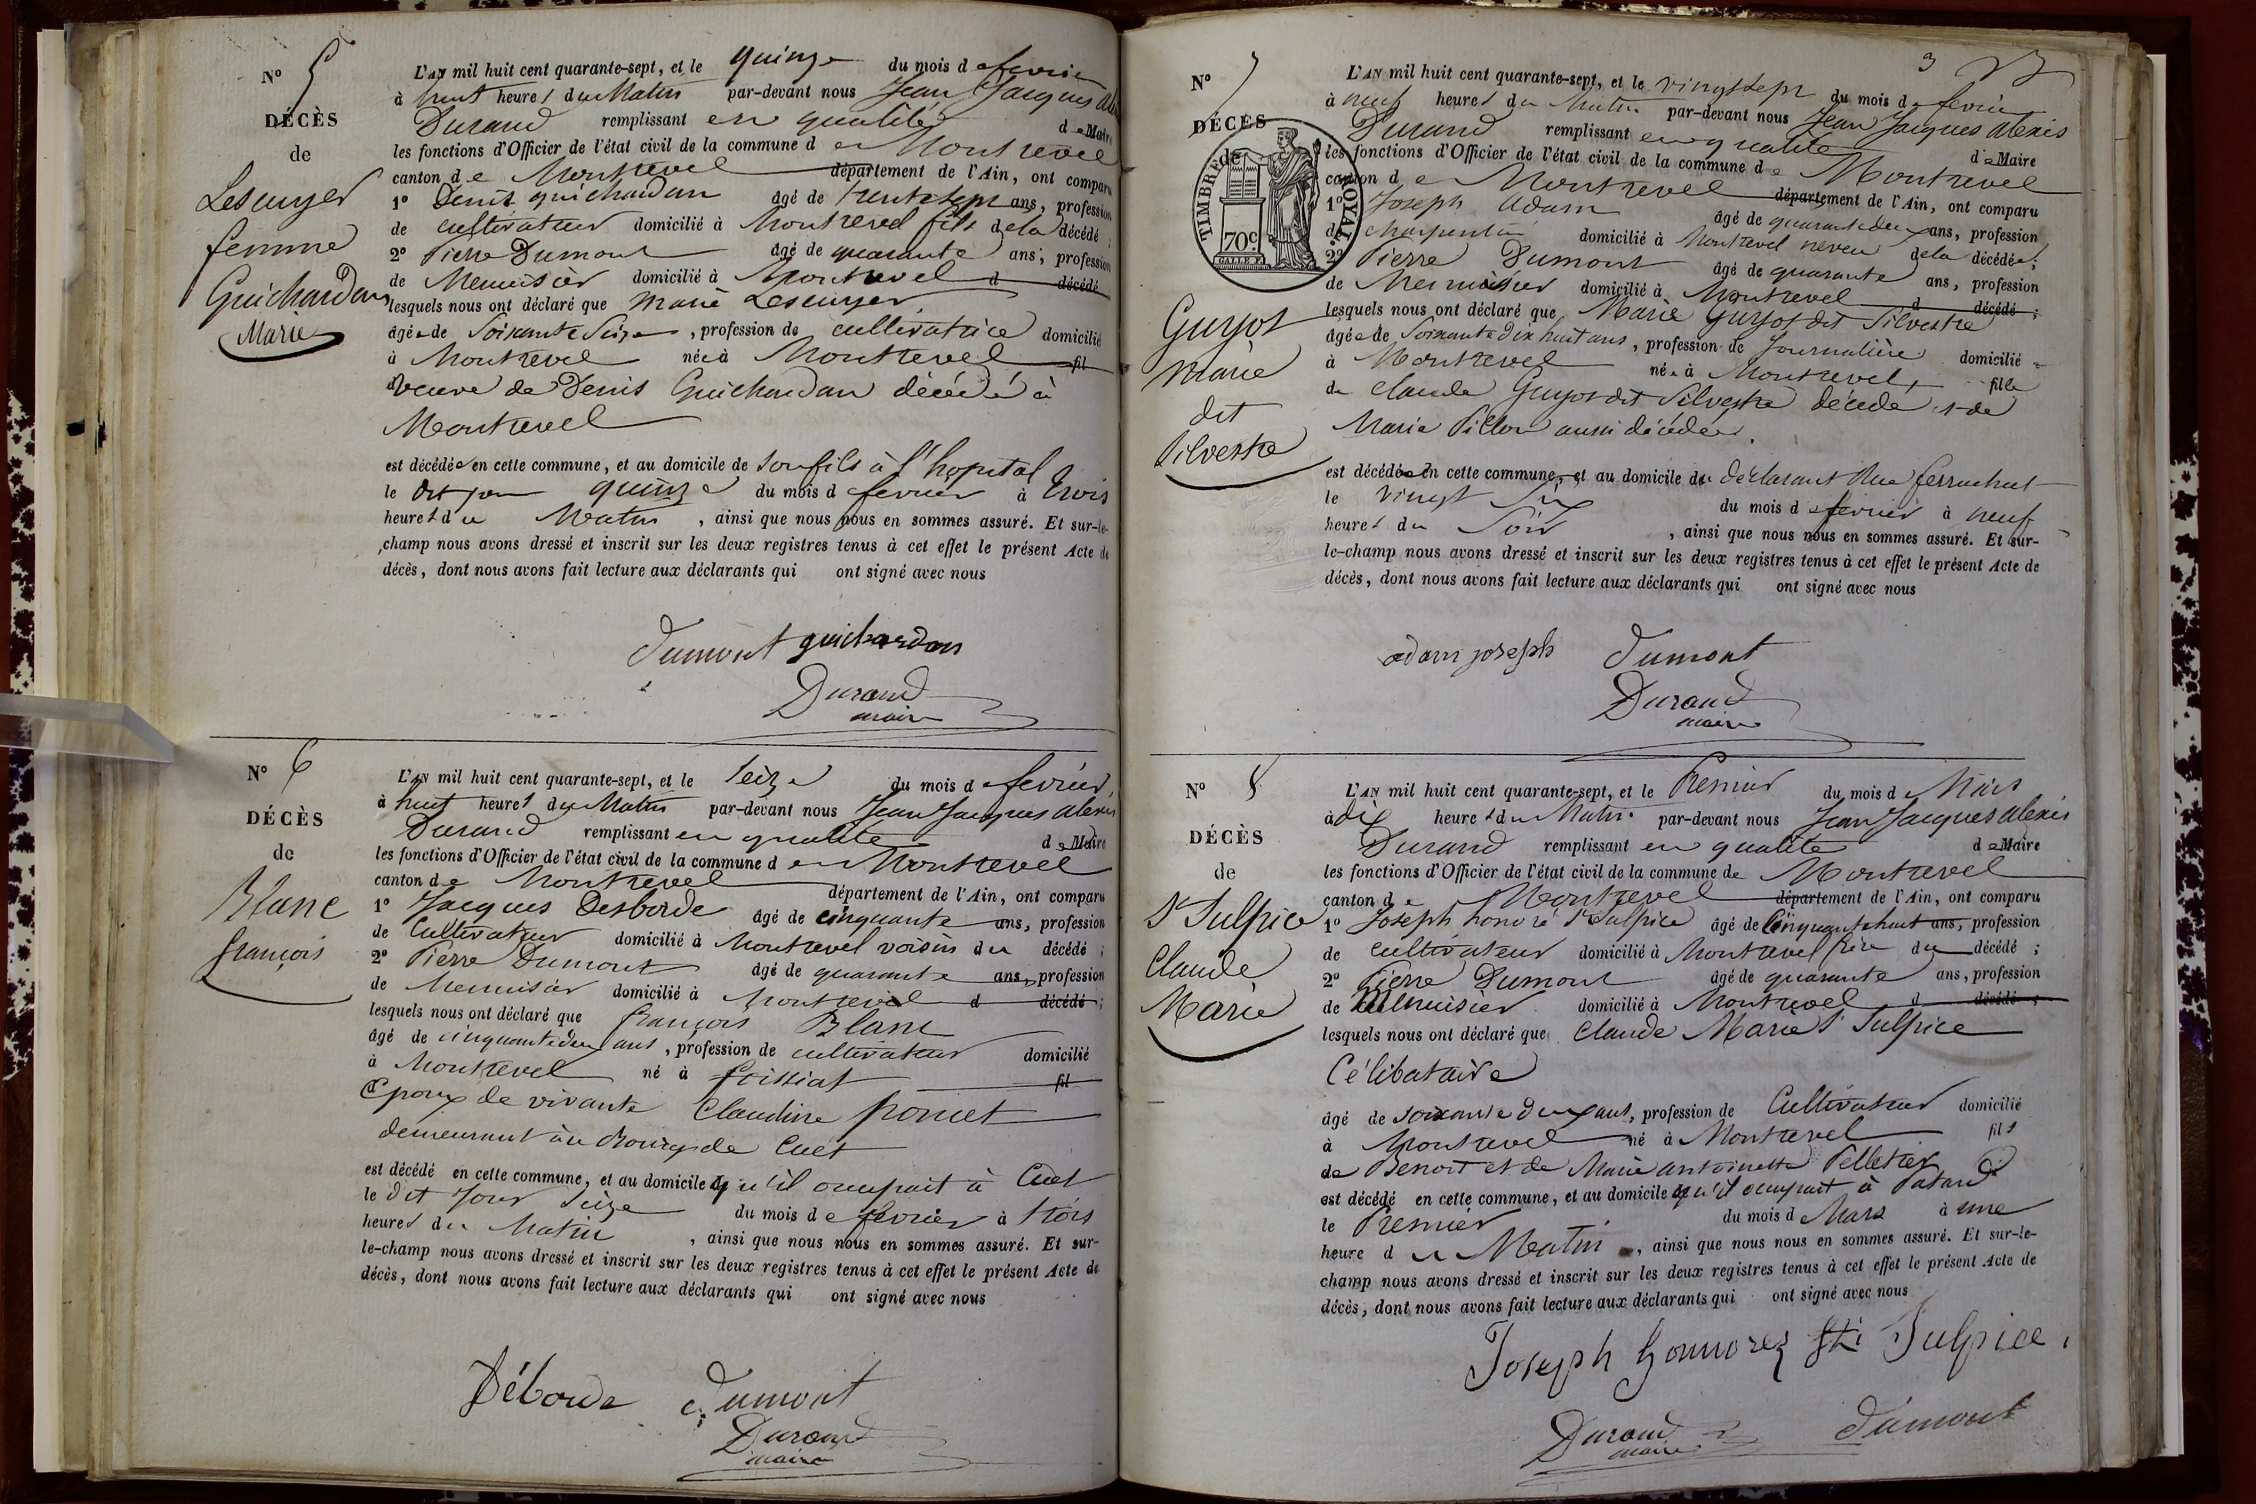 N° 5
DÉCÈS
de
Lescuyer
femme
Guichardan
Marie
L'AN mil huit cent quarante-sept, et le quinze du mois de fevrier
à huit heures du Matin par-devant nous Jean Jacques
Durand remplissant en qualité de Maire
les fonctions d'Officier de l'état civil de la commune de Montrevel
canton de Montrevel département de l'Ain, ont comparu
1° Denis guichardan âgé de trente sept ans, profession
de cultivateur domicilié à Montrevel fils de la décédé ;
2° Pierre Dumont âgé de quarante ans, profession
de Menuisier domicilié à Montrevel d décédé
lesquels nous ont déclaré que Marie Lescuyer
âgée de Soixante Seize, profession de cultivatrice domicilié
à Montrevel née à Montrevel fil
veuve de Denis Guichardan décédé à
Montrevel
est décédée en cette commune, et au domicile de son fils à l'hopital
le dit jour quinze du mois de fevrier à trois
heures du Matin, ainsi que nous nous en sommes assuré. Et sur-le-
champ nous avons dressé et inscrit sur les deux registres tenus à cet effet le présent Acte de
décès, dont nous avons fait lecture aux déclarants qui ont signé avec nous
Dumont guichardan
Durand
maire
N° 6
DÉCÈS
de
Blanc
françois
L'AN mil huit cent quarante-sept, et le Seize du mois de fevrier
à huit heures du Matin par-devant nous Jean Jacques alexis
Durand remplissant en qualité de Maire
les fonctions d'Officier de l'état civil de la commune de Montrevel
canton de Montrevel département de l'Ain, ont comparu
1° Jacques Desborde âgé de cinquante ans, profession
de Cultivateur domicilié à Montrevel voisin du décédé ;
2° Pierre Dumont âgé de quarante ans, profession
de Menuisier domicilié à Montrevel d décédé ;
lesquels nous ont déclaré que françois Blanc
âgé de cinquante deux ans, profession de cultivateur domicilié
à Montrevel né à foissiat fil
Epoux de vivante Claudine poncet
demeurant au Bourg de Cuet
est décédé en cette commune, et au domicile qu'il occupait à Cuet
le dit jour Seize du mois de fevrier à trois
heures du Matin, ainsi que nous nous en sommes assuré. Et sur-
le-champ nous avons dressé et inscrit sur les deux registres tenus à cet effet le présent Acte de
décès, dont nous avons fait lecture aux déclarants qui ont signé avec nous
Déborde Dumont
Durand
maire
3
N° 7
DÉCÈS
de
TIMBRE ROYAL
70c
Guyot
Marie
dit
Silvestre
L'AN mil huit cent quarante-sept, et le vingt sept du mois de fevrier
à neuf heures du Matin par-devant nous Jean Jacques alexis
Durand remplissant en qualité de Maire
les fonctions d'Officier de l'état civil de la commune de Montrevel
canton de Montrevel département de l'Ain, ont comparu
1° Joseph Adam âgé de quarante deux ans, profession
de charpentier domicilié à Montrevel neveu de la décédée ;
2° Pierre Dumont âgé de quarante ans, profession
de Menuisier domicilié à Montrevel d décédé ;
lesquels nous ont déclaré que Marie Guyot dit Silvestre
âgée de Soixante dix huit ans, profession de Journalière domicilié
à Montrevel née à Montrevel fille
de Claude Guyot dit Silvestre décédé et de
Marie Pillon aussi décédée.
est décédée en cette commune, et au domicile du déclarant Rue ferrachat
le vingt Six du mois de fevrier à neuf
heures du Soir, ainsi que nous nous en sommes assuré. Et sur-
le-champ nous avons dressé et inscrit sur les deux registres tenus à cet effet le présent Acte de
décès, dont nous avons fait lecture aux déclarants qui ont signé avec nous
adam joseph Dumont
Durand
maire
N° 8
DÉCÈS
de
St Sulpice
Claude
Marie
L'AN mil huit cent quarante-sept, et le Premier du mois de Mars
à dix heures du Matin par-devant nous Jean Jacques alexis
Durand remplissant en qualité de Maire
les fonctions d'Officier de l'état civil de la commune de Montrevel
canton de Montrevel département de l'Ain, ont comparu
1° Joseph honoré St Sulpice âgé de Cinquante huit ans, profession
de cultivateur domicilié à Montrevel frère du décédé ;
2° Pierre Dumont âgé de quarante ans, profession
de Menuisier domicilié à Montrevel d décédé ;
lesquels nous ont déclaré que Claude Marie St Sulpice
Célibataire
âgé de soixante deux ans, profession de Cultivateur domicilié
à Montrevel né à Montrevel fils
de Benoit et de Marie antoinette Pelletier
est décédé en cette commune, et au domicile qu'il occupait à
le Premier du mois de Mars à une
heure du Matin, ainsi que nous nous en sommes assuré. Et sur-le-
champ nous avons dressé et inscrit sur les deux registres tenus à cet effet le présent Acte de
décès, dont nous avons fait lecture aux déclarants qui ont signé avec nous
Joseph honnorez St Sulpice
Durand Dumont
maire